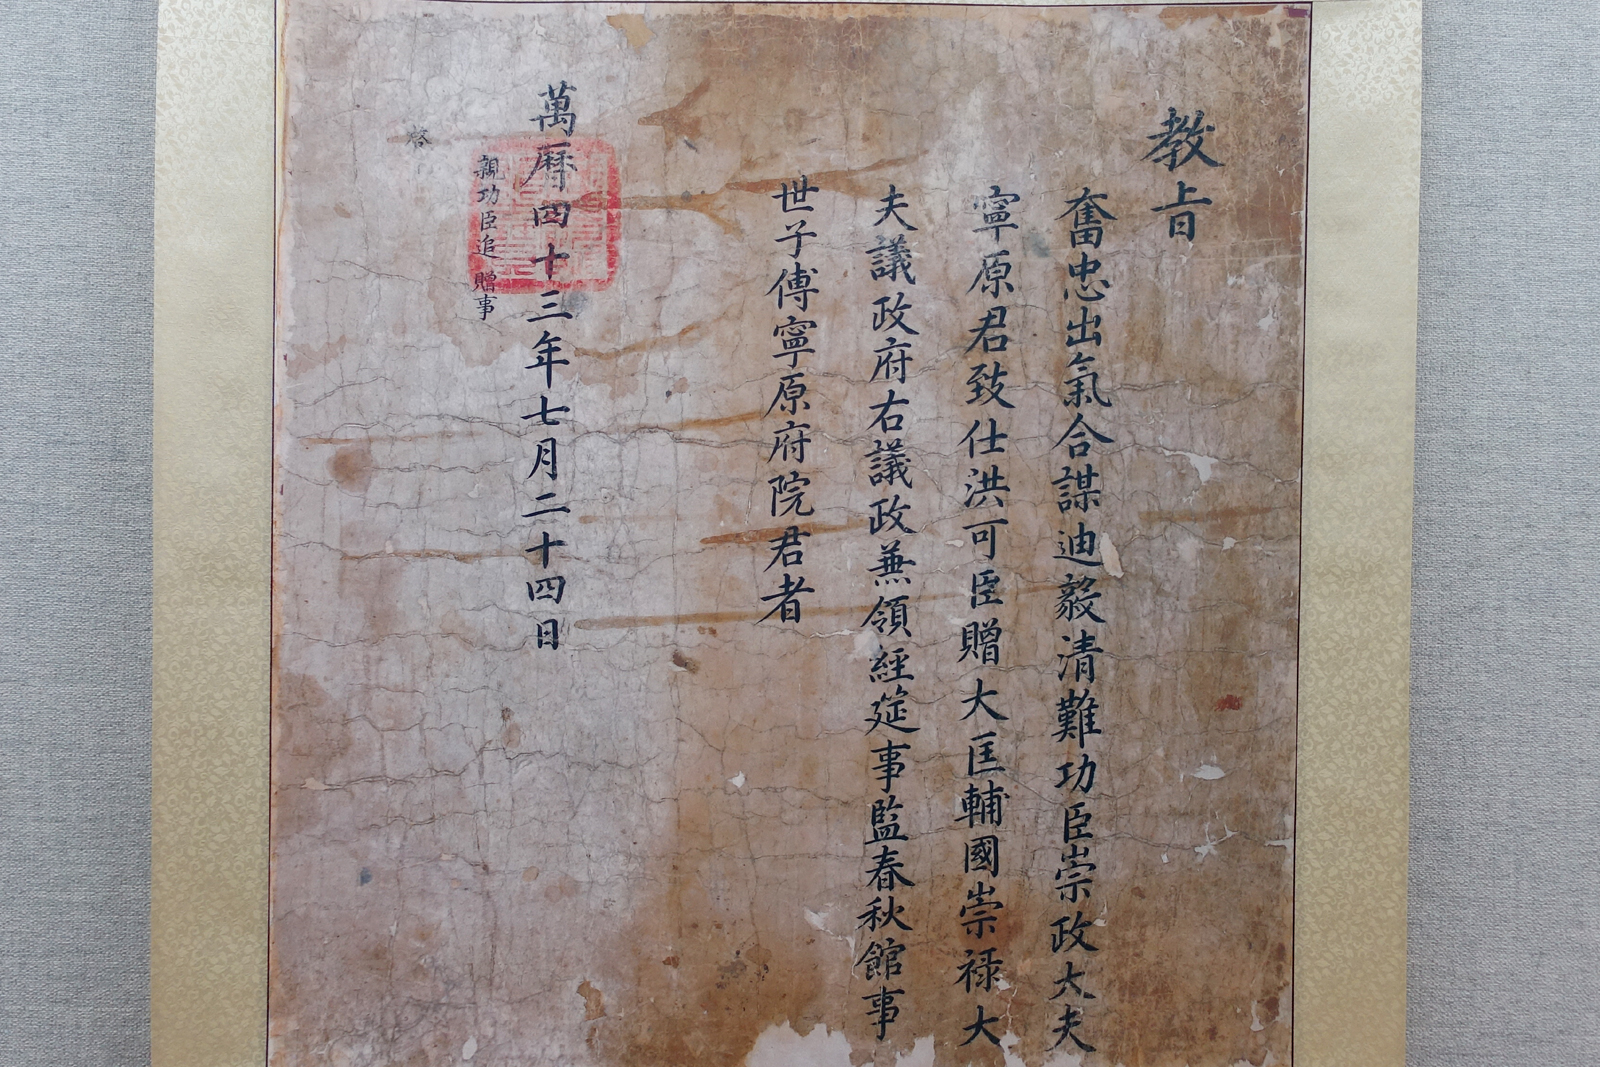 教旨
奮忠出氣合謀迪毅清難功臣崇政大夫
寧原君致仕洪可臣贈大匡輔國崇祿大
夫議政府右議政兼領經筵事監春秋館事
世子傅寧原府院君者
萬曆四十三年七月二十四日
親功臣追贈事
啓